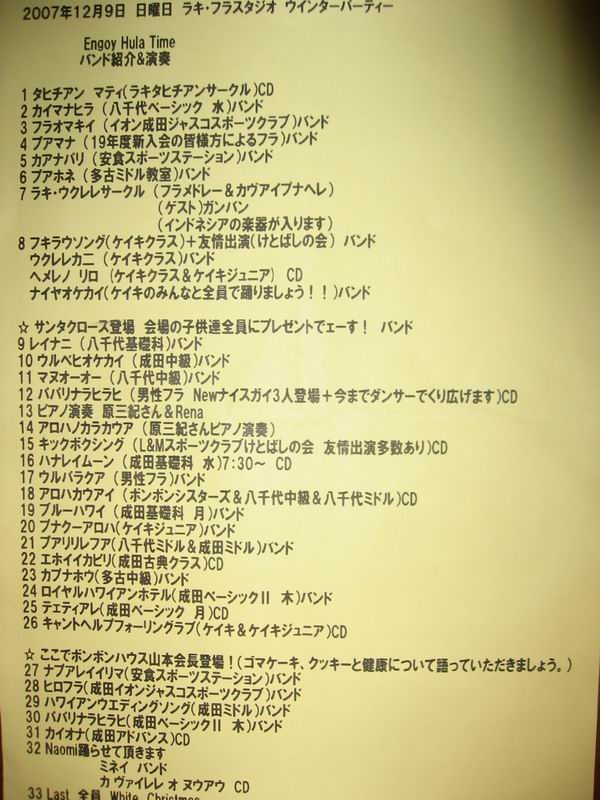 2007年12月9日 日曜日 ラキ・フラスタジオ ウインターパーティー
Engoy Hula Time
バンド紹介&演奏
1 タヒチアン マティ(ラキタヒチアンサークル)CD
2 カイマナヒラ (八千代ベーシック 水)バンド
3 フラオマキイ (イオン成田ジャスコスポーツクラブ)バンド
4 プアマナ (19年度新入会の皆様方によるフラ)バンド
5 カアナパリ (安食スポーツステーション)バンド
6 プアホネ (多古ミドル教室)バンド
7 ラキ・ウクレレサークル (フラメドレー&カヴァイプナヘレ)
(ゲスト)ガンバン
(インドネシアの楽器が入ります)
8 フキラウソング(ケイキクラス)+友情出演(けとばしの会) バンド
ウクレレカニ (ケイキクラス)バンド
ヘメレノ リロ (ケイキクラス&ケイキジュニア) CD
ナイヤオケカイ(ケイキのみんなと全員で踊りましょう!!)バンド
☆ サンタクロース登場 会場の子供達全員にプレゼントでェーす! バンド
9 レイナニ (八千代基礎科)バンド
10 ウルベヒオケカイ (成田中級)バンド
11 マヌオーオー (八千代中級)バンド
12 パパリナラヒラヒ (男性フラ Newナイスガイ3人登場+今までダンサーでくり広げます)CD
13 ピアノ演奏 原三紀さん&Rena
14 アロハノカラカウア (原三紀さんピアノ演奏)
15 キックボクシング (L&Mスポーツクラブけとばしの会 友情出演多数あり)CD
16 ハナレイムーン (成田基礎科 水)7:30~ CD
17 ウルパラクア (男性フラ)バンド
18 アロハカウアイ (ボンボンシスターズ&八千代中級&八千代ミドル)CD
19 ブルーハワイ (成田基礎科 月)バンド
20 プナクーアロハ(ケイキジュニア)バンド
21 プアリリレフア(八千代ミドル&成田ミドル)バンド
22 エホイイカピリ(成田古典クラス)CD
23 カプナホウ(多古中級)バンド
24 ロイヤルハワイアンホテル(成田ベーシックII 木)バンド
25 テェティアレ(成田ベーシック 月)CD
26 キャントヘルプフォーリングラブ(ケイキ&ケイキジュニア)CD
☆ ここでボンボンハウス山本会長登場!(ゴマケーキ、クッキーと健康について語っていただきましょう。)
27 ナプアレイイリマ(安食スポーツステーション)バンド
28 ヒロフラ(成田イオンジャスコスポーツクラブ)バンド
29 ハワイアンウエディングソング(成田ミドル)バンド
30 パパリナラヒラヒ(成田ベーシックII 木)バンド
31 カイオナ(成田アドバンス)CD
32 Naomi踊らせて頂きます
ミネイ バンド
カ ヴァイレレ オ ヌウアウ CD
33 Last 全員 White Christmas